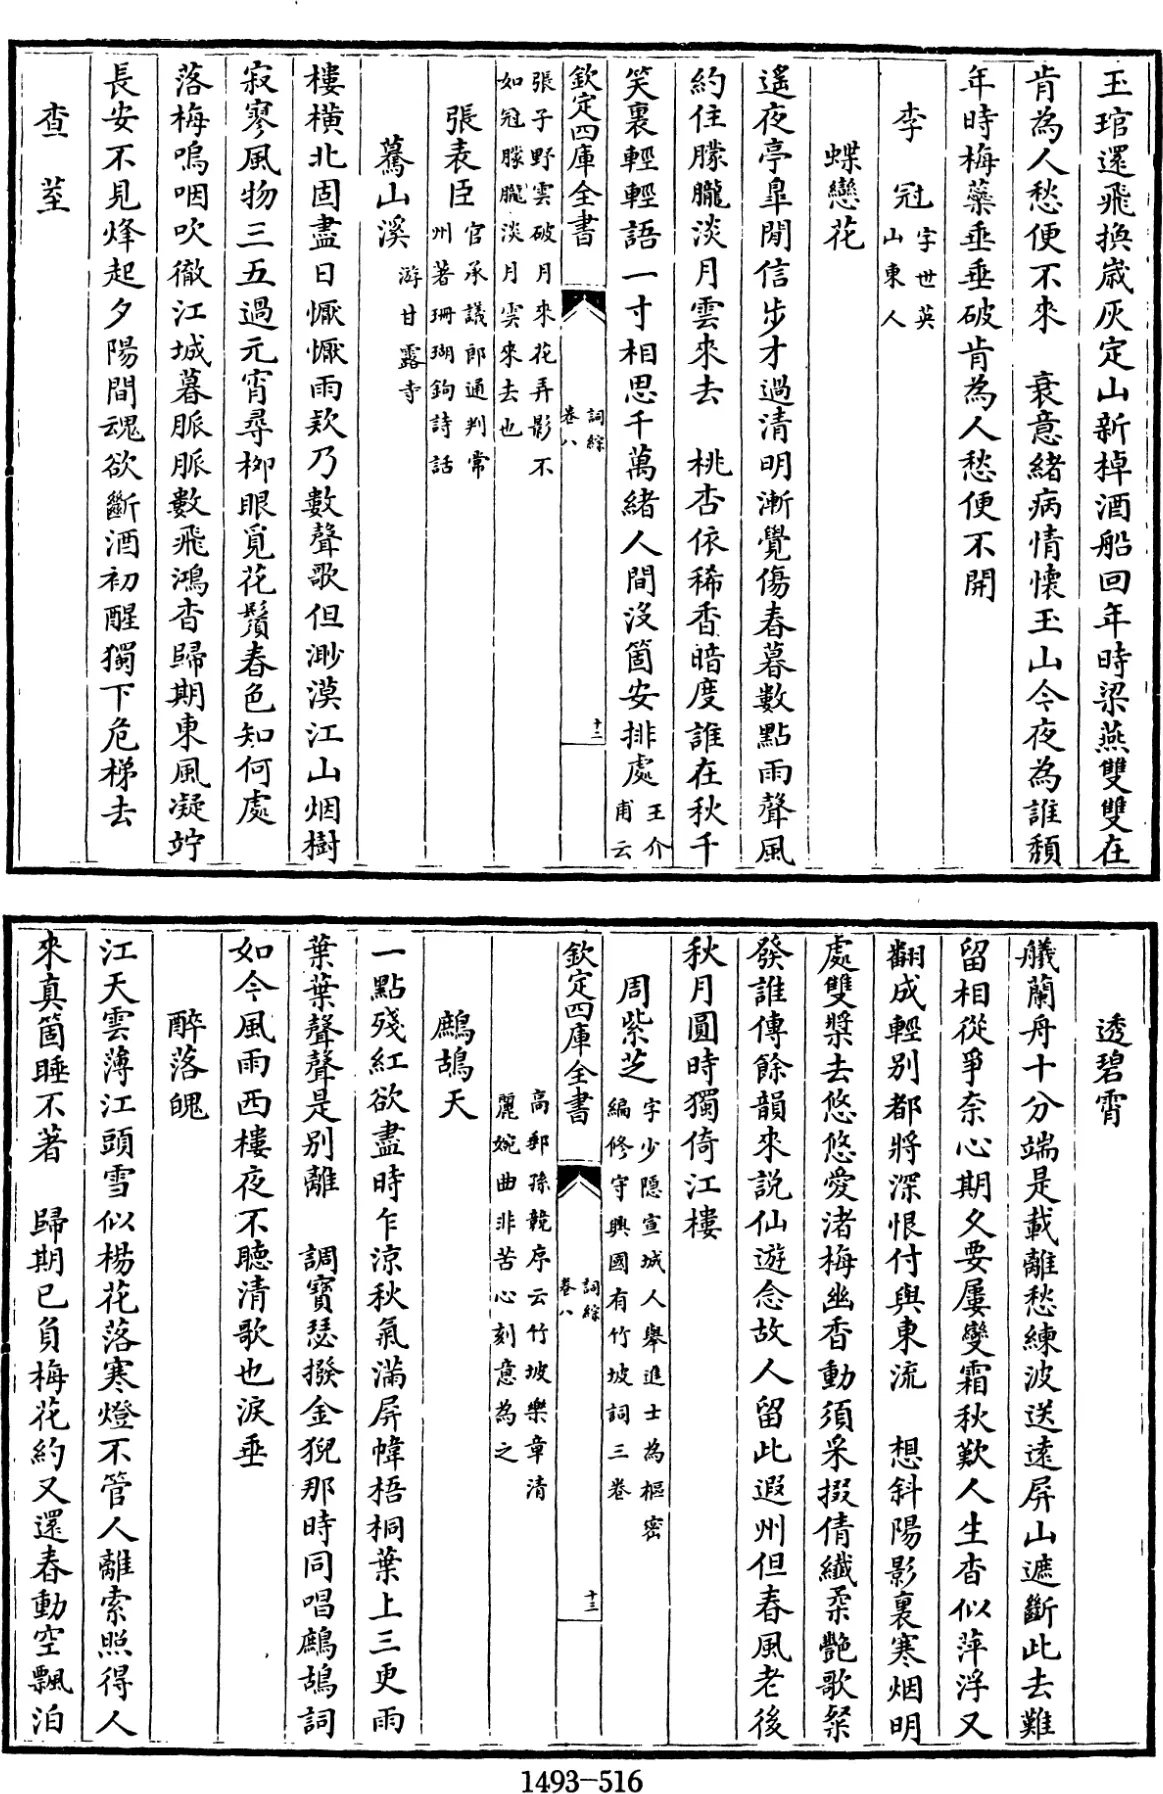 玉琯還飛換歲灰定山新棹酒船回年時梁燕雙雙在
肯為人愁便不來　衰意緒病情懷玉山今夜為誰頹
年時梅蘂垂垂破肯為人愁便不開
李　冠字世英
山東人
蝶戀花
遙夜亭臯閒信步才過清明漸覺傷春暮數點雨聲風
約住朦朧淡月雲來去　桃杏依稀香暗度誰在秋千
笑裏輕輕語一寸相思千萬緒人間沒箇安排處王介
甫云
欽定四庫全書
詞綜
卷八
十二
張子野雲破月來花弄影不
如冠朦朧淡月雲來去也
張表臣官承議郎通判常
州著珊瑚鉤詩話
驀山溪游甘露寺
樓橫北固盡日懨懨雨欵乃數聲歌但渺漠江山烟樹
寂寥風物三五過元宵尋栁眼覓花鬚春色知何處
落梅嗚咽吹徹江城暮脈脈數飛鴻杳歸期東風凝竚
長安不見烽起夕陽間魂欲斷酒初醒獨下危梯去
查　荎
透碧霄
艤蘭舟十分端是載離愁練波送遠屏山遮斷此去難
留相從爭奈心期久要屢變霜秋歎人生杳似萍浮又
翻成輕别都將深恨付與東流　想斜陽影裏寒烟明
處雙槳去悠悠愛渚梅幽香動須采掇倩纖柔艶歌粲
發誰傳餘韻來説仙遊念故人留此遐州但春風老後
秋月圓時獨倚江樓
周紫芝字少隱宣城人舉進士為樞密
編修守興國有竹坡詞三卷
欽定四庫全書
詞綜
卷八
十三
高郵孫兢序云竹坡樂章清
麗婉曲非苦心刻意為之
鷓鴣天
一點殘紅欲盡時乍涼秋氣滿屏幃梧桐葉上三更雨
葉葉聲聲是别離　調寶瑟撥金猊那時同唱鷓鴣詞
如今風雨西樓夜不聽清歌也淚垂
醉落魄
江天雲薄江頭雪似楊花落寒燈不管人離索照得人
來真箇睡不著　歸期已負梅花約又還春動空飄泊
1493-516